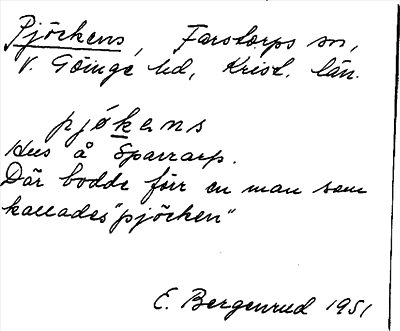 Pjöckens, Farstorps sn,
V. Göinge hd, Krist. län.
pjøkens
Hus å Sparrarp.
Där bodde förr en man som
kallades "pjöcken"
E. Bergenrud 1951